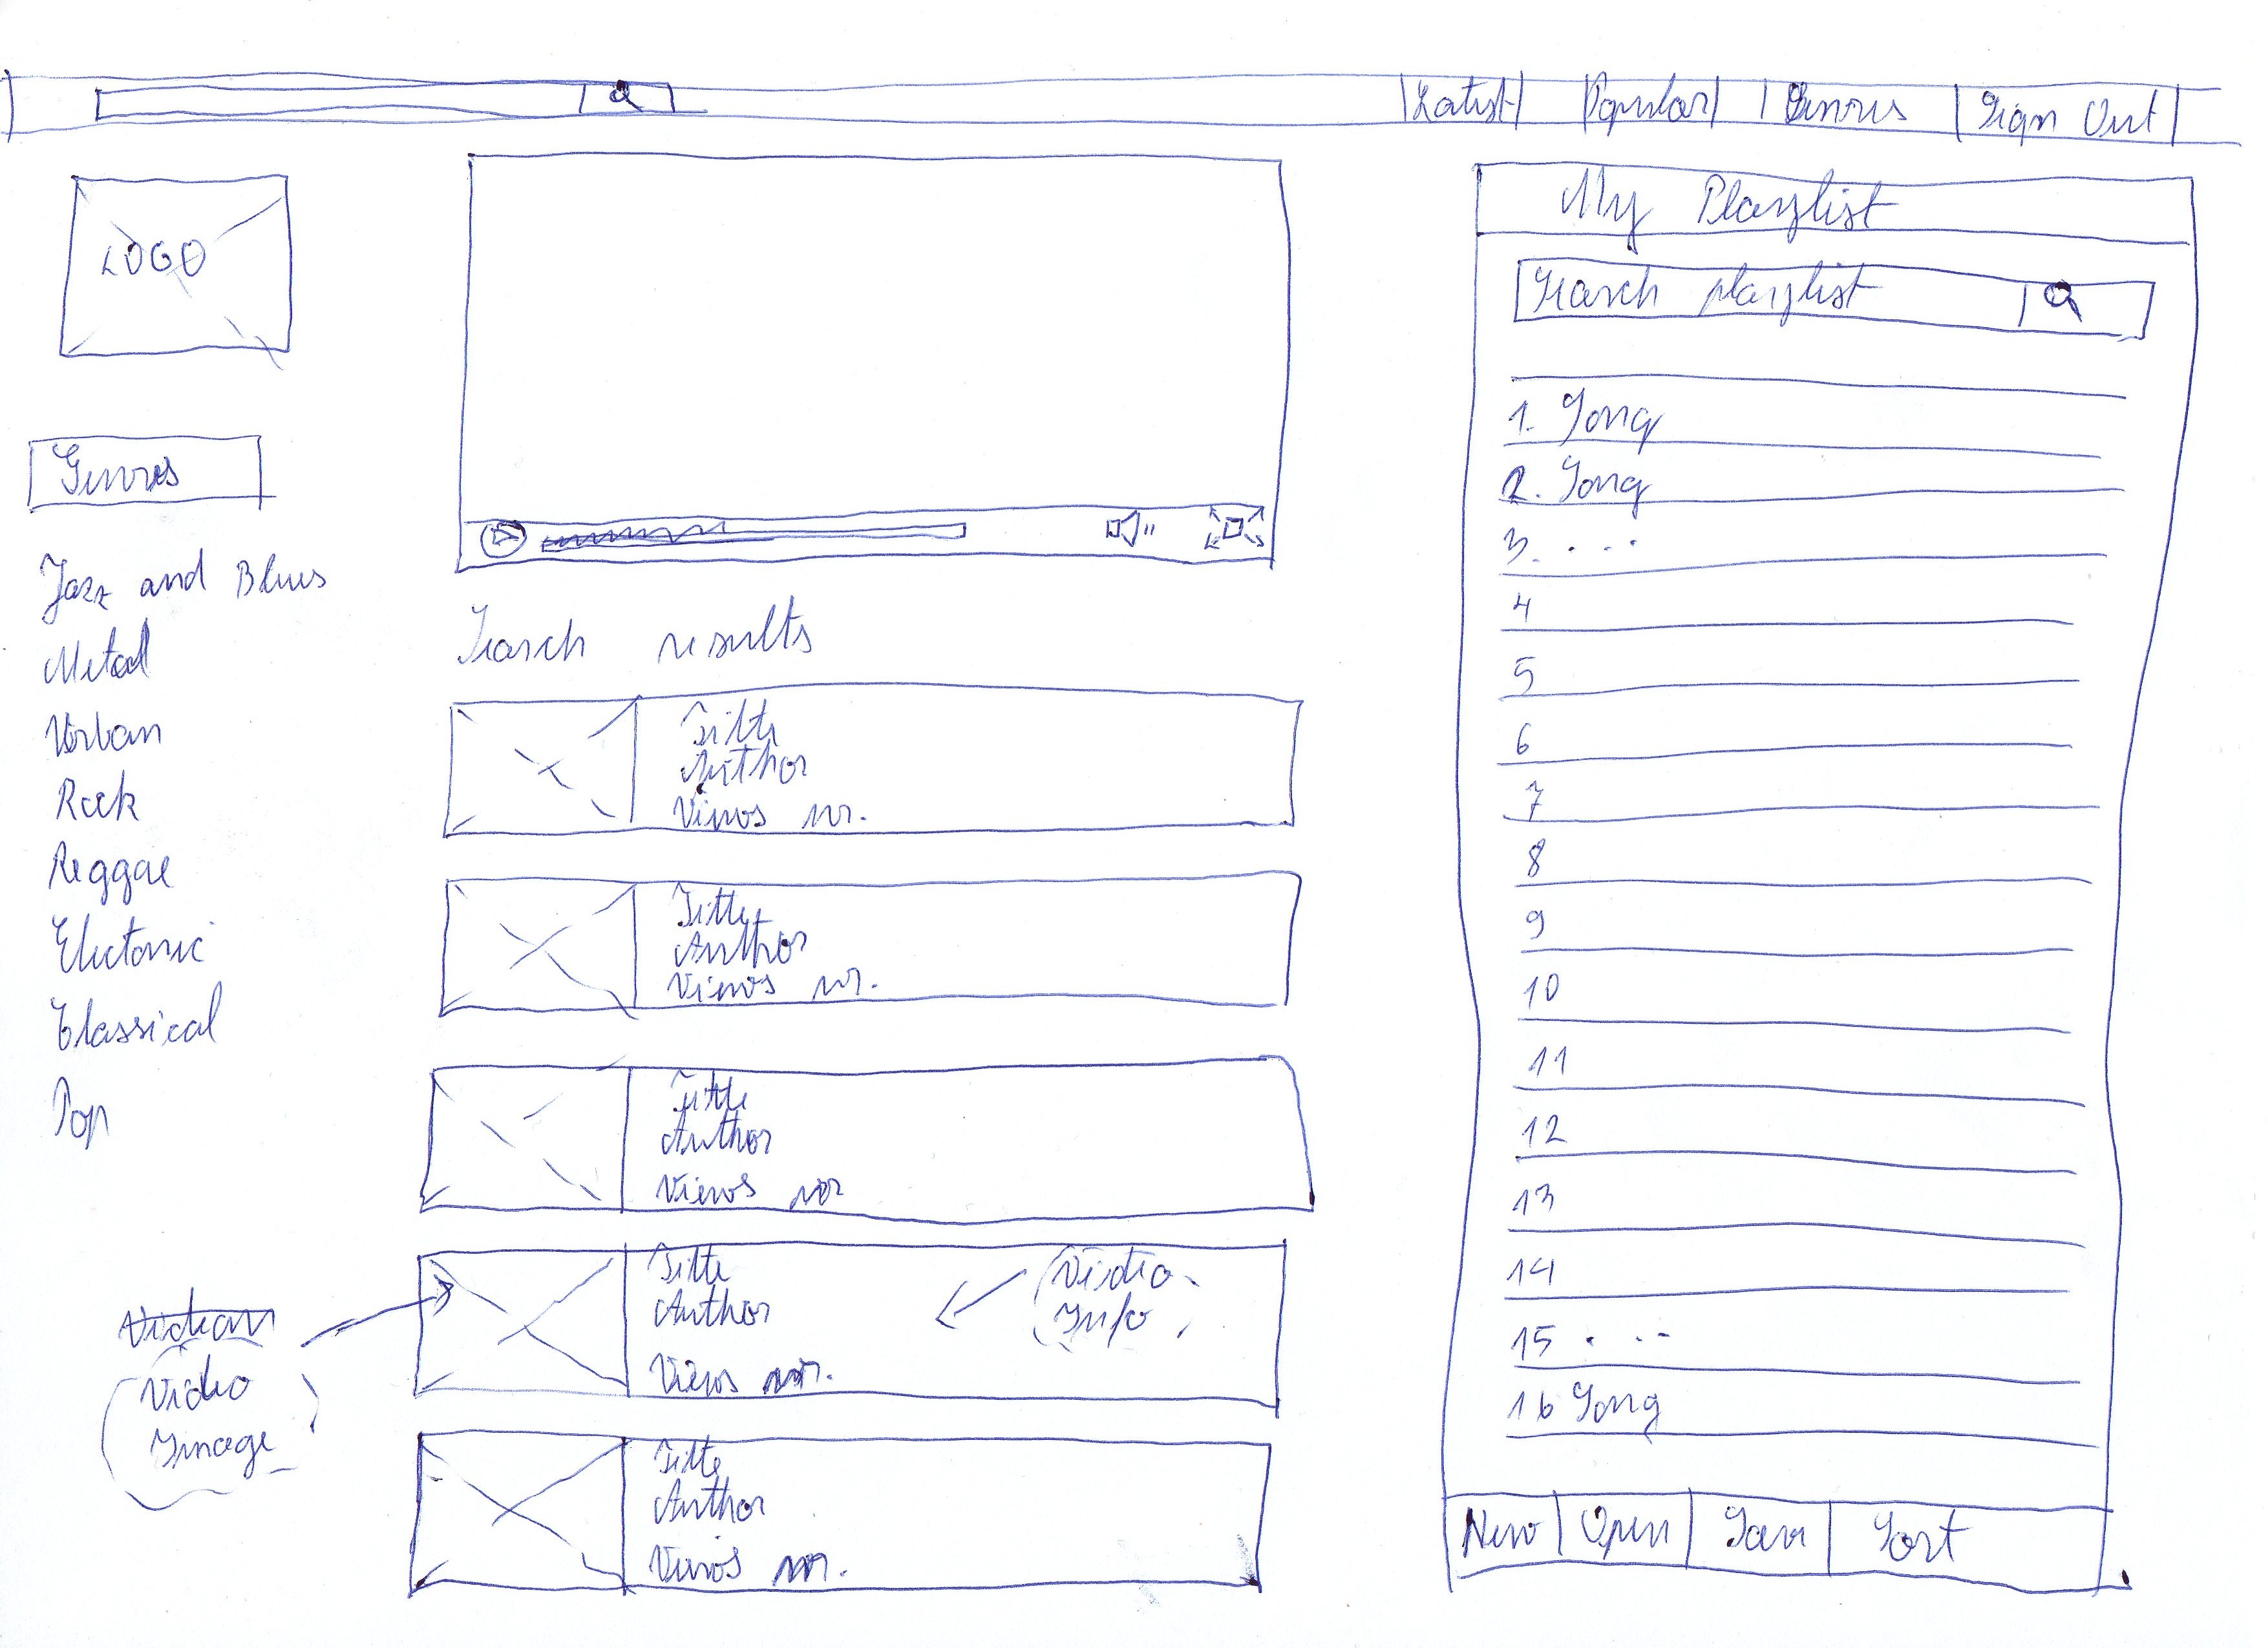 Latest Popular Genres Sign Out
LOGO
Genres
Jazz and Blues
Metal
Urban
Rock
Reggae
Electonic
Classical
Pop
Video
Image
Search results
Title
Author
Views nr.
Title
Author
Views nr.
Title
Author
Views nr
Title
Author
Views nr.
Video
Info
Title
Author
Views nr.
My Playlist
Search playlist
1. Song
2. Song
3. . . .
4
5
6
7
8
9
10
11
12
13
14
15 . . .
16 Song
New Open Save Sort